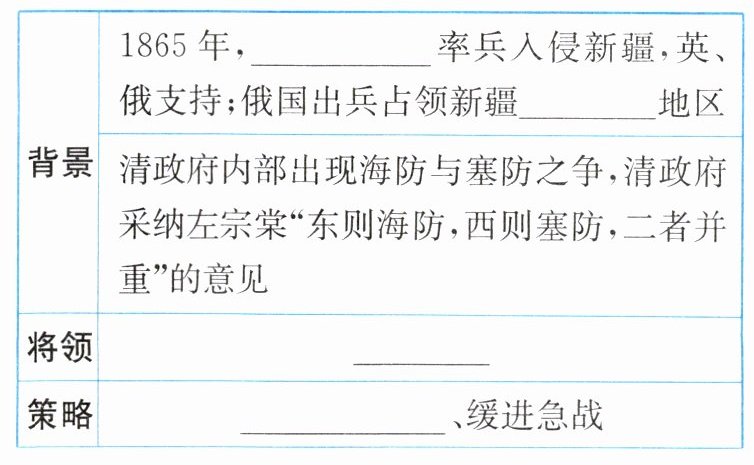 1865年,____________率兵入侵新疆,英、
俄支持;俄国出兵占领新疆_________地区
背景
清政府内部出现海防与塞防之争,清政府
采纳左宗棠“东则海防,西则塞防,二者并
重”的意见
将领 _________
策略 ______________、缓进急战